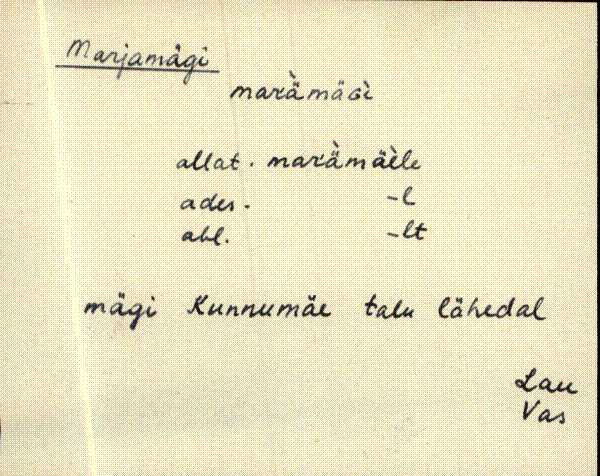 Marjamägi
marä̀mäɢi̇̀
allat. marä̀mäè̀le
ades. -l
abl. -lt
mägi Kunnumäe talu lähedal
Lau
Vas